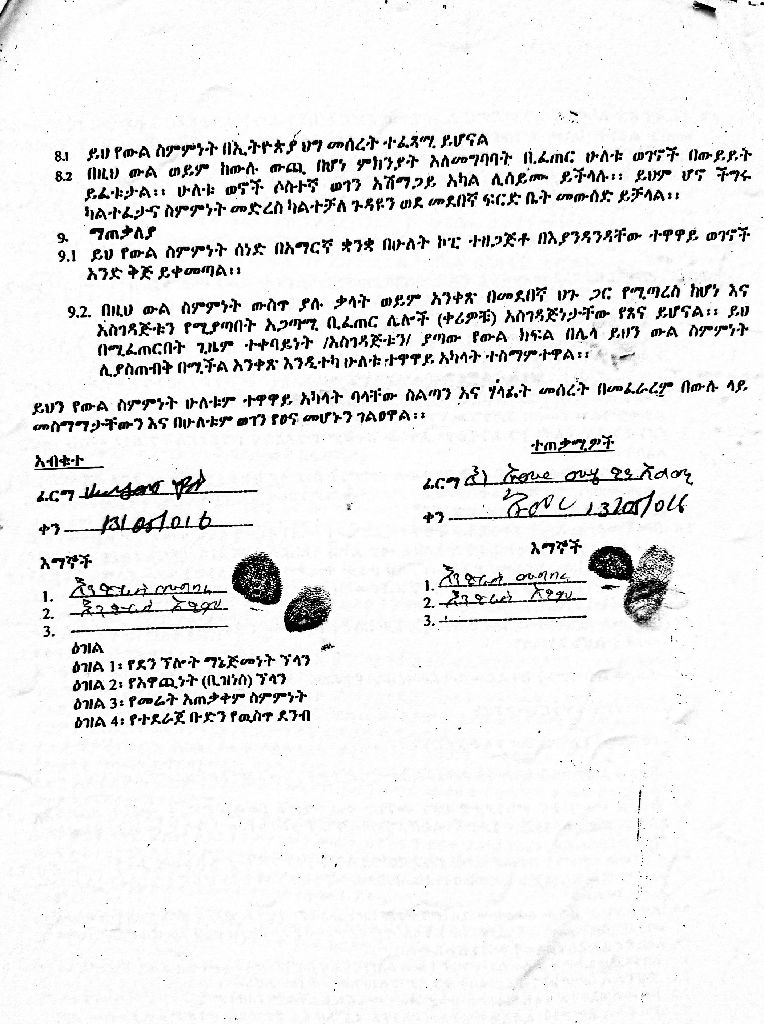 8.1 ይህ የውል ስምምነት በኢትዮጵያ ህግ መሰረት ተፈጻሚ ይሆናል
8.2 በዚህ ውል ወይም ከውሉ ውጪ በሆነ ምክንያት አለመግባባት ቢፈጠር ሁለቱ ወገኖች በውይይት
ይፈቱታል፡፡ ሁለቱ ወኖች ሶስተኛ ወገን አሸማጋይ አካል ሊሰይሙ ይችላሉ፡፡ ይህም ሆኖ ችግሩ
ካልተፈታና ስምምነት መድረስ ካልተቻለ ጉዳዩን ወደ መደበኛ ፍርድ ቤት መውሰድ ይቻላል፡፡
9. ማጠቃለያ
9.1 ይህ የውል ስምምነት ሰነድ በአማርኛ ቋንቋ በሁለት ኮፒ ተዘጋጅቶ በእያንዳንዳቸው ተዋዋይ ወገኖች
አንድ ቅጅ ይቀመጣል፡፡
9.2. በዚህ ውል ስምምነት ውስጥ ያሉ ቃላት ወይም አንቀጽ በመደበኛ ህጉ ጋር የሚጣረስ ከሆነ እና
አስገዳጅቱን የሚያጣበት አጋጣሚ ቢፈጠር ሌሎች (ቀሪዎቹ) አስገዳጅነታቸው የጸና ይሆናል፡፡ ይህ
በሚፈጠርበት ጊዜም ተቀባይነት /አስገዳጅቱን/ ያጣው የውል ክፍል በሌላ ይህን ውል ስምምነት
ሊያስጠብቅ በሚችል አንቀጽ እንዲተካ ሁለቱ ተዋዋይ አካላት ተስማምተዋል፡፡
ይህን የውል ስምምነት ሁለቱም ተዋዋይ አካላት ባላቸው ስልጣን እና ሃላፊት መሰረት በመፈራረም በውሉ ላይ
መስማማታቸውን እና በሁለቱም ወገን የፀና መሆኑን ገልፀዋል፡፡
አብቁተ
ፊርማ
ቀን 13/05/016
እማኞች
1.
2.
3.
ተጠቃሚዎች
ፊርማ
ቀን 13/05/016
እማኞች
1.
2.
3.
ዕዝል
ዕዝል 1፡ የደን ፕሎት ማኔጅመነት ፕላን
ዕዝል 2፡ የአዋጪነት (ቢዝነስ) ፕላን
ዕዝል 3፡ የመሬት አጠቃቀም ስምምነት
ዕዝል 4፡ የተደራጀ ቡድን የዉስጥ ደንብ